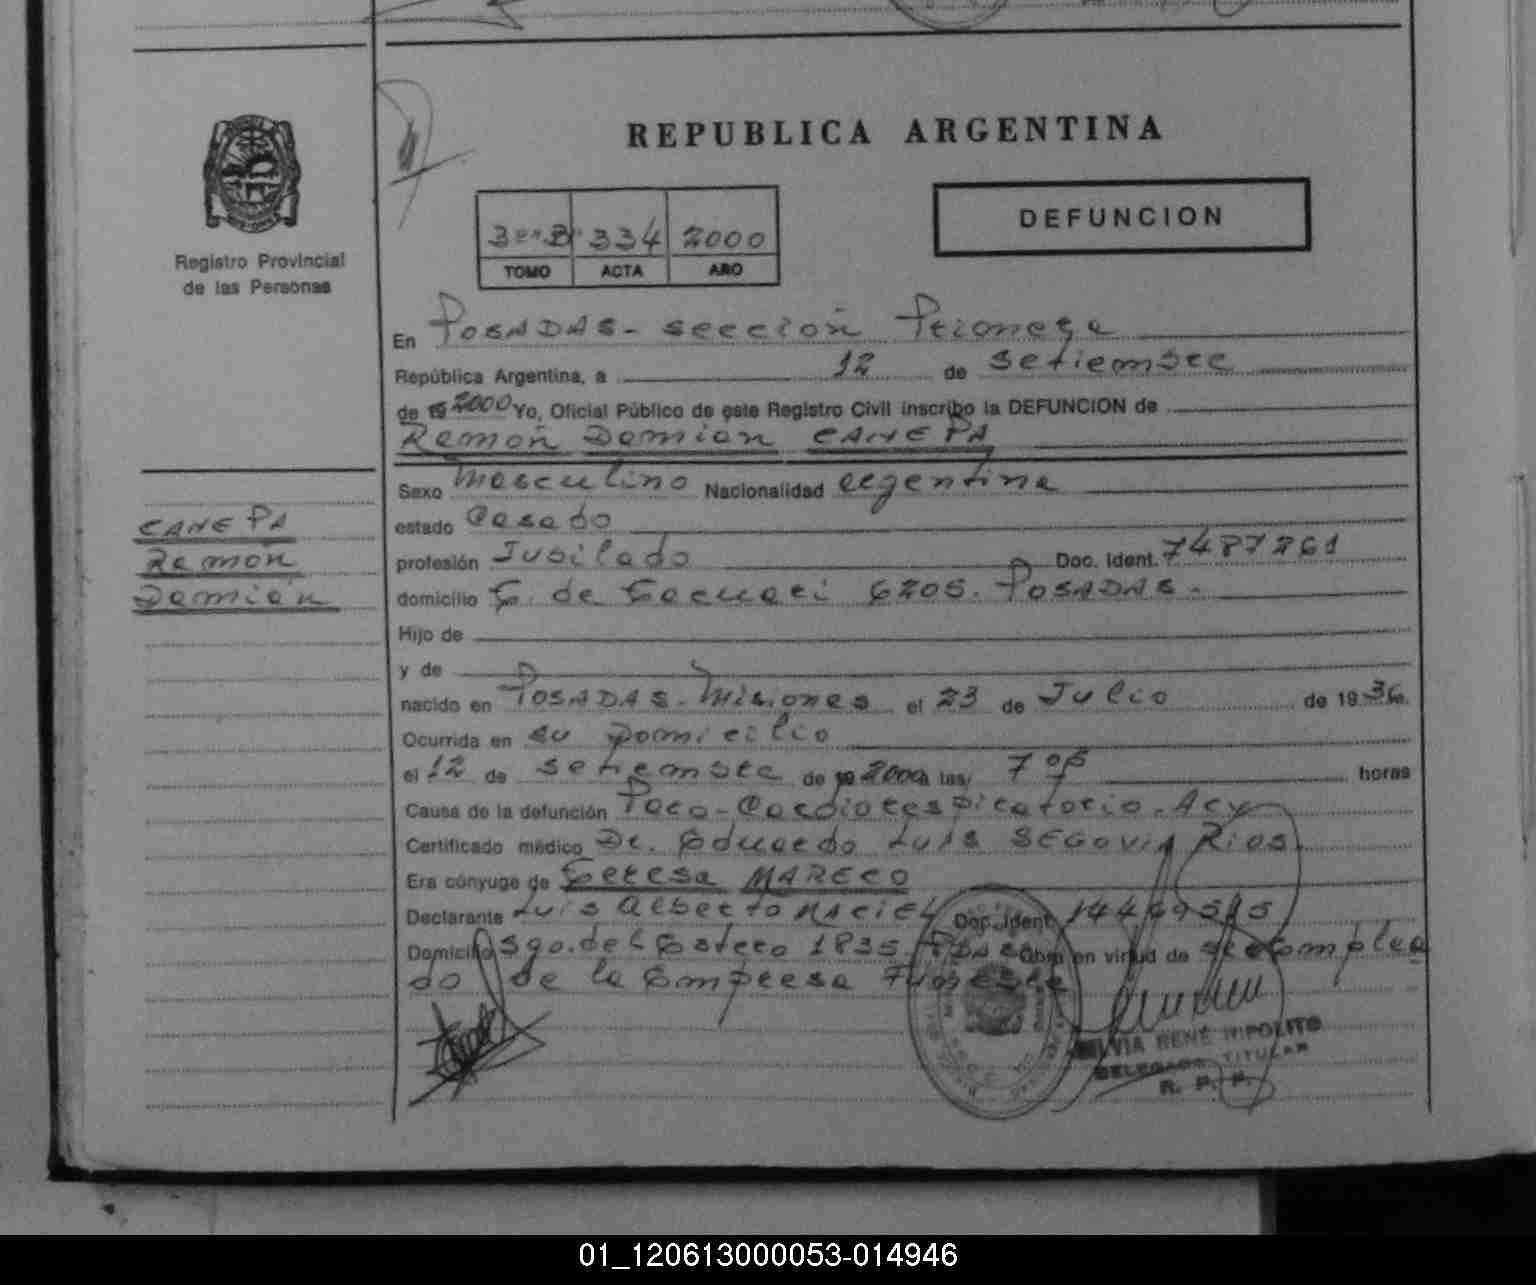 REPUBLICA ARGENTINA
DEFUNCION
334 2000
TOMO ACTA AÑO
Registro Provincial
de las Personas
En POSADAS - sección
República Argentina, a 12 de setiembre
de 19 2000 Yo, Oficial Público de este Registro Civil inscribo la DEFUNCION de
Ramón Damián CANEPA
CANEPA
Ramón
Damián
Sexo masculino Nacionalidad argentina
estado Casado
profesión Jubilado Doc. Ident. 7487261
domicilio 6205. POSADAS.
Hijo de
y de
nacido en POSADAS - Misiones el 23 de Julio de 1936.
Ocurrida en su Domicilio
el 12 de setiembre de 19 2000 a las 7 horas
Causa de la defunción Paro-Cardiorespiratorio. Acv
Certificado médico Dr. Eduardo Luis SEGOVIA Rios
Era cónyuge de Teresa MARECO
Declarante Luis Alberto MACIEL Doc. Ident.
Domicilio Sgo. del Estero 1835 Obra en virtud de ser emplea
do de la Empresa Funebre
SILVIA RENÉ HIPOLITO
DELEGADA TITULAR
R. P. P.
01_120613000053-014946